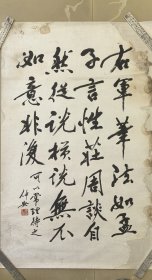 右軍筆法如孟
子言性莊周談自
然從說橫說無不
如意非復
可以常理待之